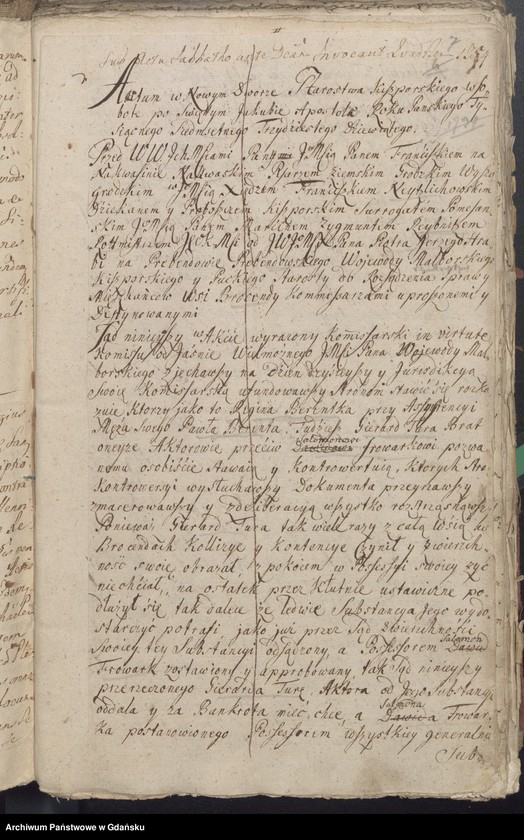 Actum w Nowym Dworze Starostwa Kisporskiego w So-
botę po Swiętym Jakubie Apostole Roku Panskiego Ty-
siącznego Siedmsetnego Trzydziestego Dziewiątego.
Przed WW Ich Mściami Panem JMścią Panem Franciszkiem na
Nakwaśinie Nakwaskim Pisarzem Ziemskim Grodzkim Wyszo-
grodzkim JMścią Xiędzem Franciszkiem
Dziekanem y Proboszczem Kisporskim Surrogatem Pomezan-
skim JMścią Panem Zygmuntem
Rotmistrzem JKMści od JWJMści Pana Piotra Jerzego Hra-
bi na Prebendowie Prebendowskiego Wojewody Malborskiego
Kisporskiego y Puckiego Starosty do Rozsądzenia Sprawy
Mieszkańcow Wsi Brocendy Kommissarzami uproszonemi y
Destynowanymi
Sąd ninieyszy w Akcie wyrazony Kommissarski in virtute
Kommissu od Jasnie Wielmoznego JMści Pana Wojewody Mal-
borskiego zjechawszy na Dzien dzysieyszy y Jurisdikcyą
swoię Kommissarską ufundowawszy Stronom stawić się rozka-
zuie, ktorzy jako to Regina Berentka przy Assystencyi
Męża swego Pawła Berenta Tudziesz Gierard Tura Brat
oneyże Aktorowie przeciw Salomonowi Frowarkowi pozwa-
nemu osobiście stawaią y Kontrowertuią, ktorych Sąd
Kontrowersyi wysłuchawszy Dokumenta przeyrzawszy
zmacerowawszy y z deliberacyą wszystko roztrząsnąwszy
Poniewasz Gierard Tura tak wiele razy z całą Wsią
Brocendach Kollizye y Kontencye czynił y Zwierzch-
ność swoię obrażał, z pokoiem w Possessyi swoiey żyć
nie chciał, na ostatek przez Kłutnie ustawiczne po-
dłużył się tak dalece że ledwie Substancya Jego wydo-
starczyć potrafi jako już przez Sąd Zwierzchności
swoiey tey Substancyi odsądzony, a Possessorem Salamon
Frowark zostawiony y approbowany, tak Sąd ninieyszy
przerzeczonego Gierarda Turę Aktora od Jego Substancyi
oddala y za Bankrota mieć chce, a Salmona Frowar-
ka postanowionego Possessorem wszystkiey generalnie
Sub
Archiwum Państwowe w Gdańsku